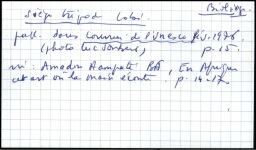 Siège tripode Lobi.
publ. dans Courrier de l'Unesco fév. 1976
(photo Luc Joubert) p. 15.
in : Amadou Hampaté BÂ, En Afrique
cet art où la main écoute. p. 14-17.